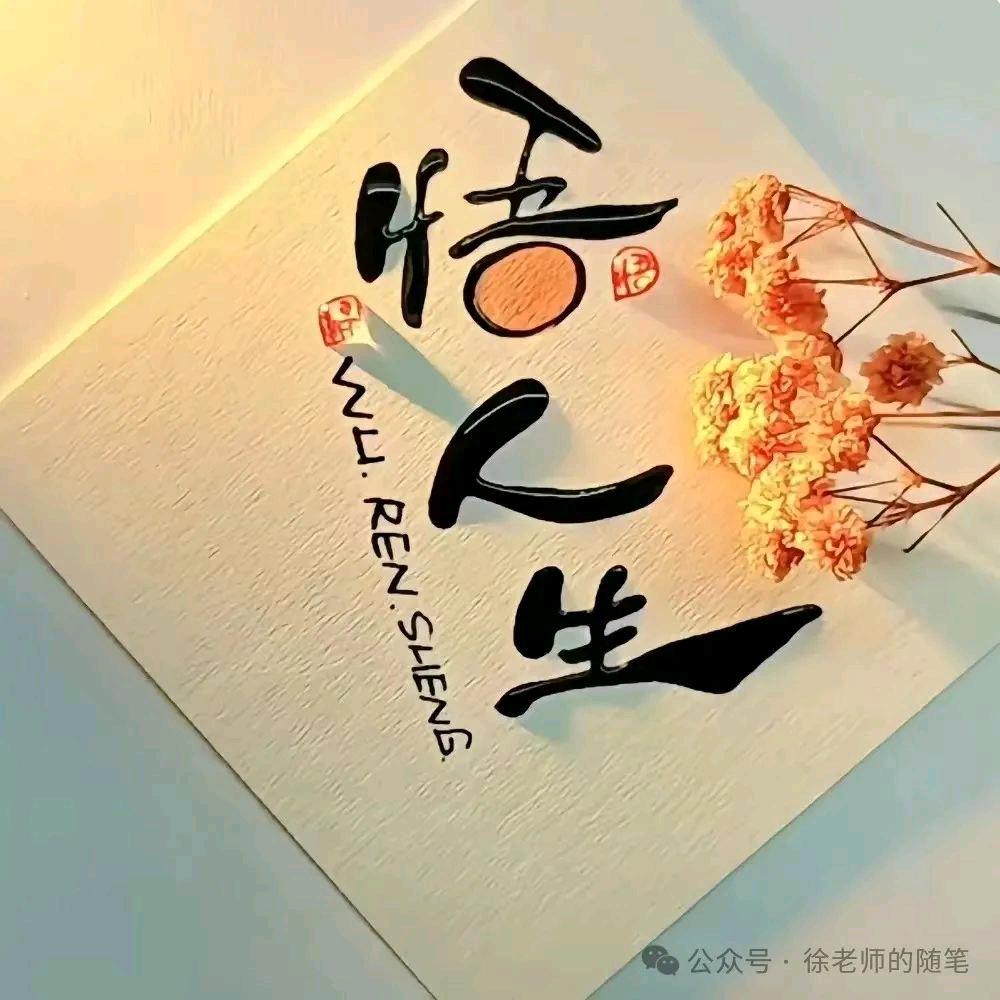 悟人生
WU. REN. SHENG.
公众号 · 徐老师的随笔